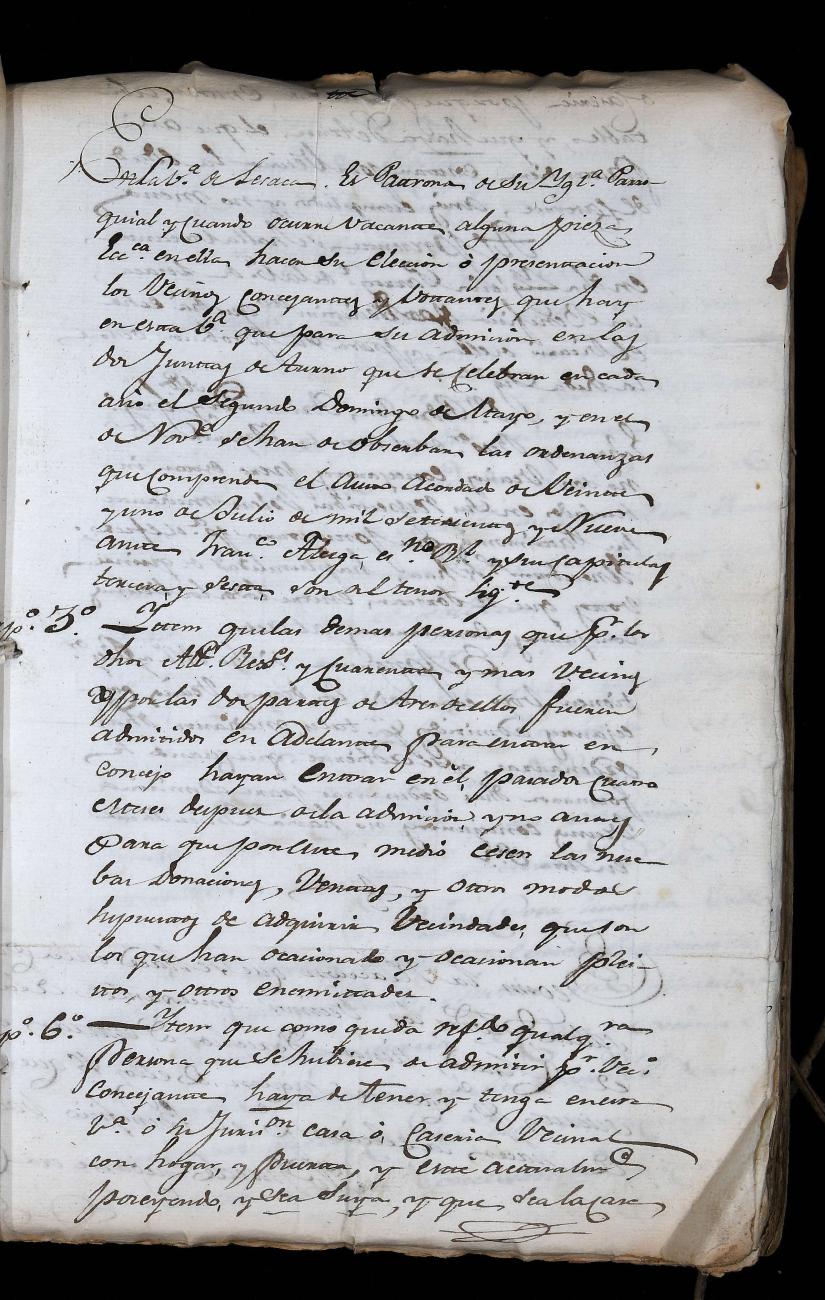 En la V.ª de Lesaca. Es Patrona de su Ygl.ª Parro-
quial y Cuando ocurre vacante alguna pieza
Ecc.ca en ella hacen su Eleccion ô presentacion
los Vecinos concejantes y Vottantes que hay
en esta V.ª que para su admision en las
dos Junttas de turno que se Celebran en cada
año el Segundo Domingo de Mayo, y en el
de Nov.e se han de observar las ordenanzas
que comprende el Auto Acordado de Veinte
y uno de Julio de mil settecientos y Nueve
ante Fran.co es.no R.l y su Capitulos
tercera y sesta, son del tenor sig.te
po. 3.º Ytem que las demas personas que p.r los
dhos Al.e Rex.s y Cuarenta y mas Vecinos
y por las dos partes de tres de ellos fueren
admitidos en adelante para entrar en
Concejo hayan Entrar en el, pasados Cuatro
meses despues de la admision y no antes
Para que por este medio cesen las nue-
bas Donaciones, Ventas, y otros modos
supuestos de adquirir Vecindades, que son
los que han ocacionado y ocacionan plei-
ttos, y ottros enemisttades.
po. 6.º Ytem que como queda ref.do qualq.ra
Persona que se hubiere de admitir p.r Vec.o
Concejante haya de tener y tenga en esta
V.ª ó su Juris.on casa ó, Caseria Vecinal
con hogar, y Puerta, y esté actualm.te
poseyendo, y sea Suya, y que sea la casa